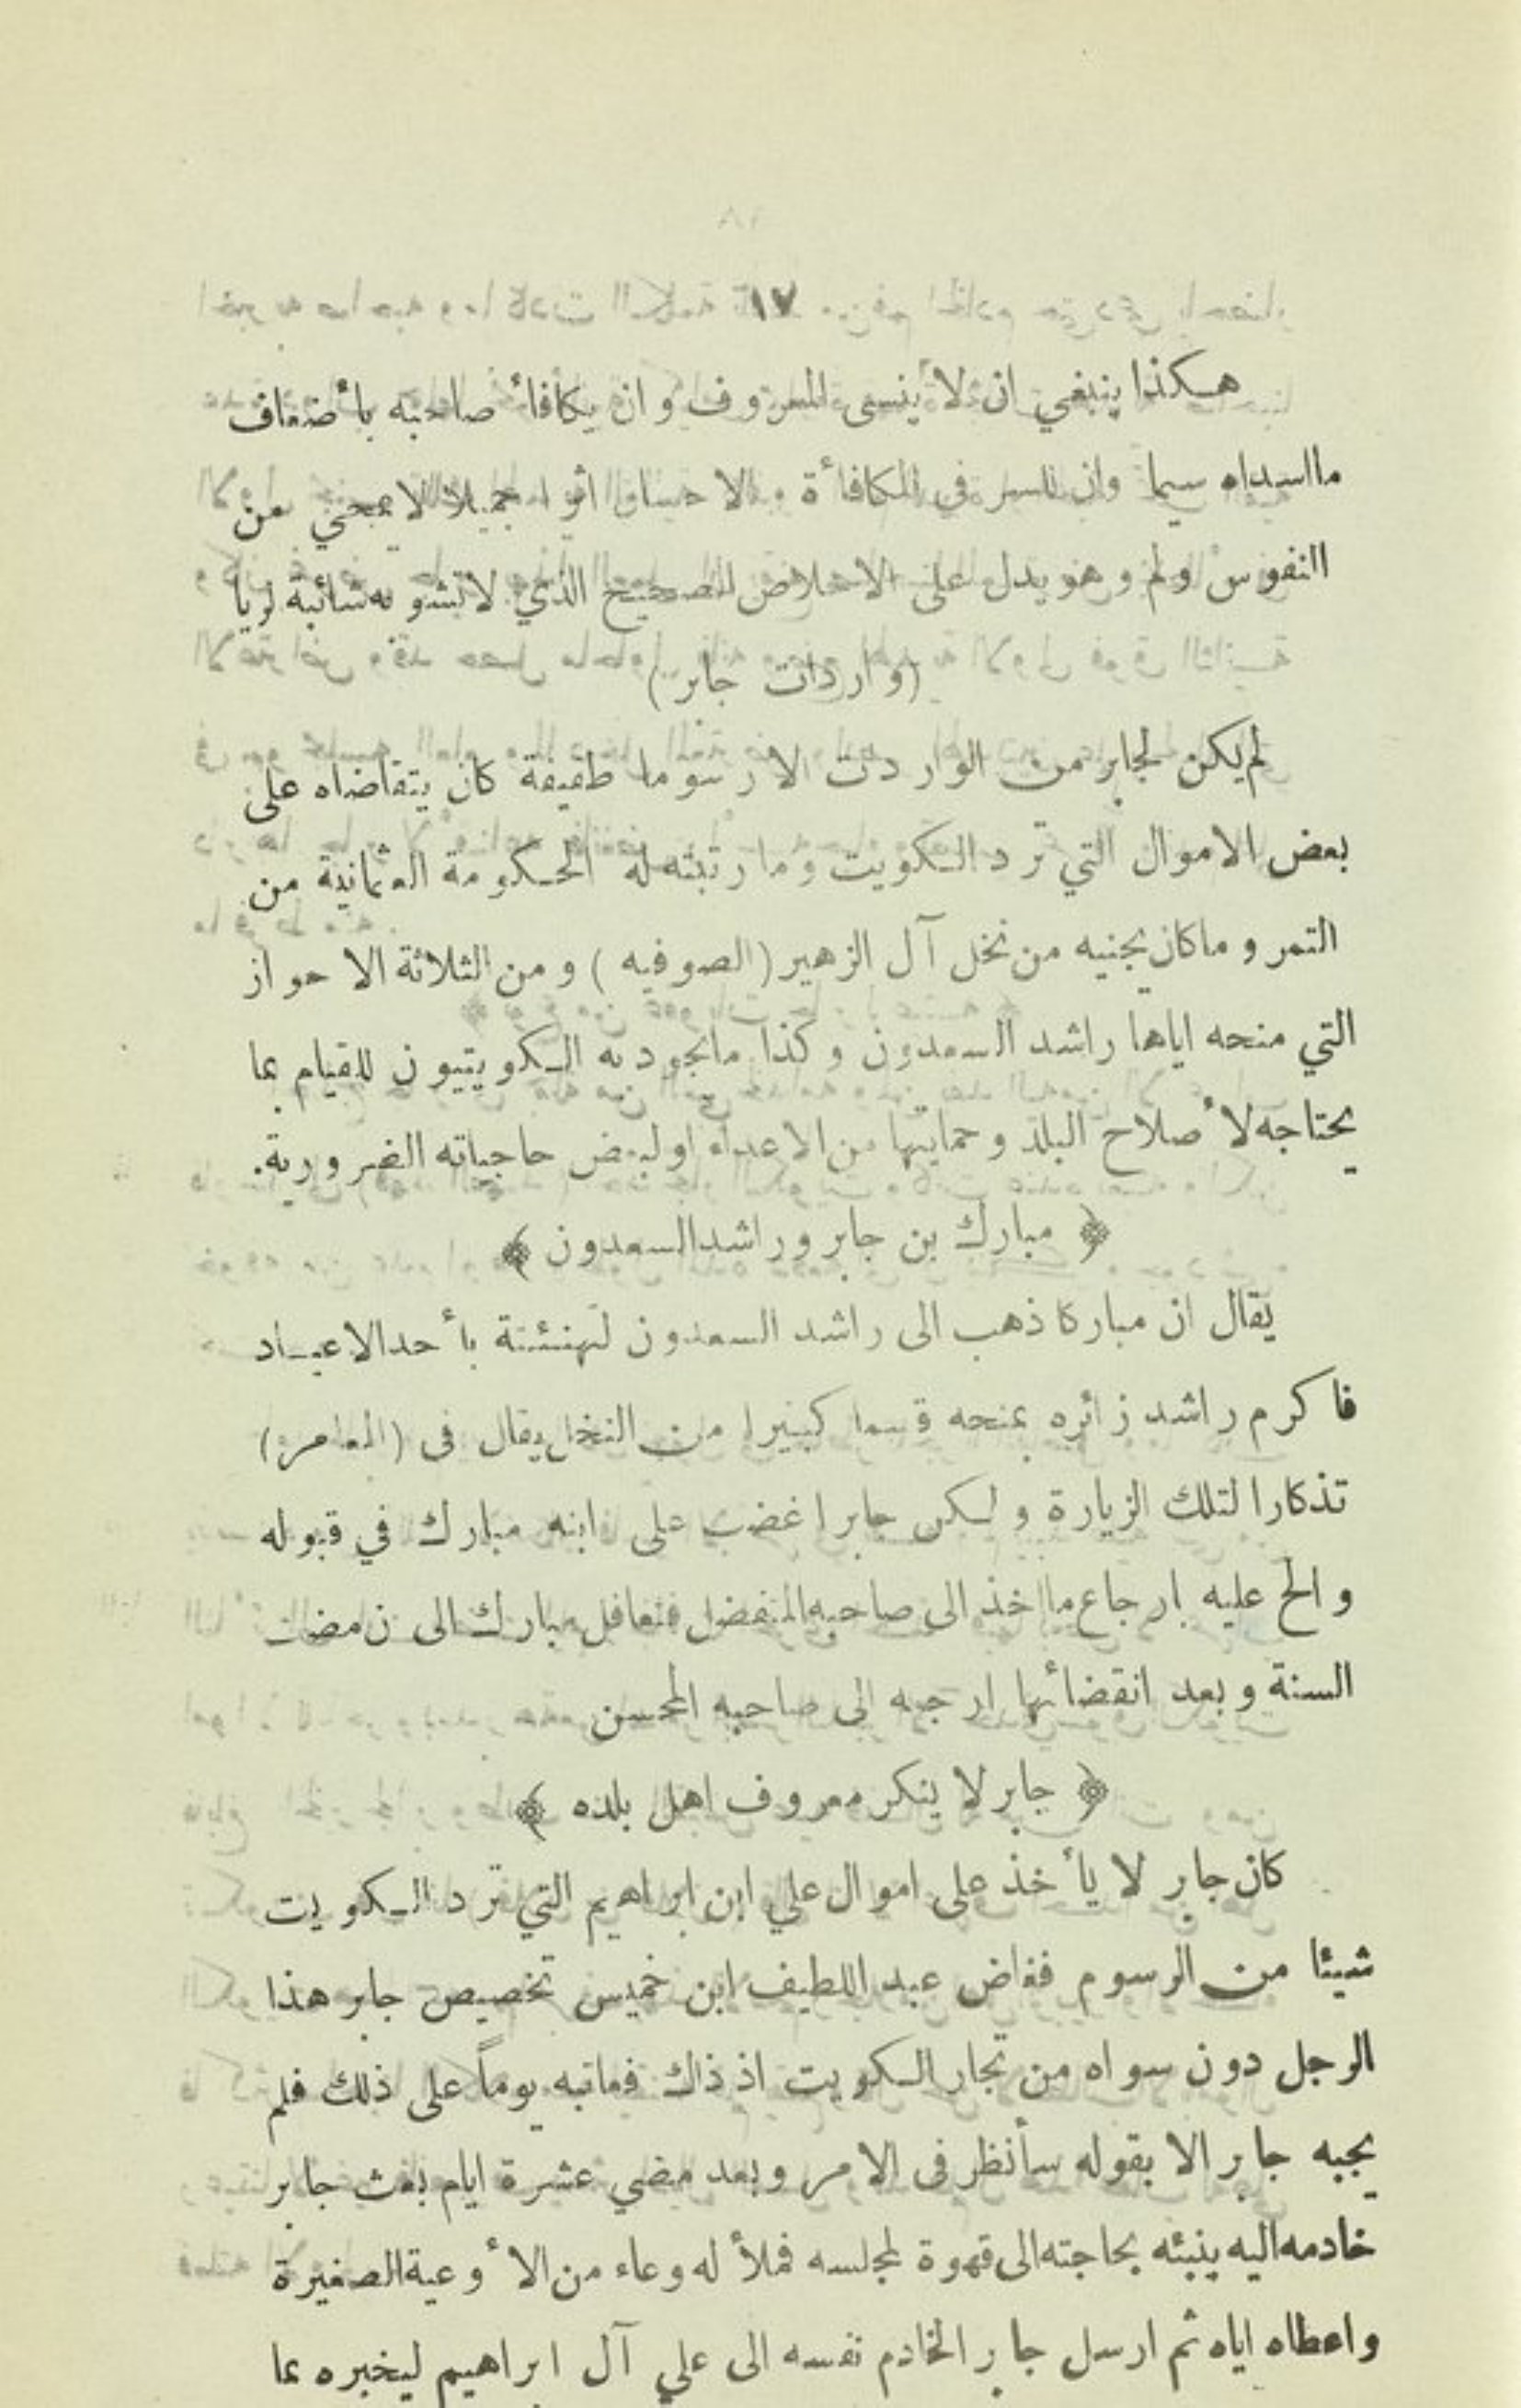 ١٧
هكذا ينبغي ان لا ينسى المعروف وان يكافأ صاحبه بأضعاف
ما اسداه سيما وان للسر في المكافأة والاحسان اثرا جميلا لا يمحي من
النفوس وهو يدل على الاخلاص الصحيح الذي لا تشوبه شائبة ريا
(واردات جابر)
لم يكن لجابر من الواردت الا رسوما طفيفة كان يتقاضاه على
بعض الاموال التي ترد الكويت وما رتبته له الحكومة العثمانية من
التمر وما كان يجنيه من نخل آل الزهير (الصوفيه) ومن الثلاثة الاحواز
التي منحه اياها راشد السعدون وكذا ما يجود به الكويتيون للقيام بما
يحتاجه لأصلاح البلد وحمايتها من الاعداء او لبعض حاجياته الضرورية.
﴿ مبارك بن جابر وراشد السعدون ﴾
يقال ان مباركا ذهب الى راشد السعدون لتهنئنة بأحد الاعياد
فاكرم راشد زائره بمنحه قسما كبيرا من النخل يقال في (المعامر)
تذكارا لتلك الزيارة ولكن جابرا غضب على ابنه مبارك في قبوله
والح عليه بارجاع ما اخذ الى صاحبه المتفضل فتغافل مبارك الى ن مضت
السنة وبعد انقضائها ارجعه الى صاحبه المحسن
﴿ جابر لا ينكر معروف اهل بلده ﴾
كان جابر لا يأخذ على اموال علي ابن ابراهيم التي ترد الكويت
شيئا من الرسوم فغاض عبد اللطيف ابن خميس تخصيص جابر هذا
الرجل دون سواه من تجار الكويت اذ ذاك فعاتبه يوماً على ذلك فلم
يجبه جابر الا بقوله سأنظر في الامر وبعد مضي عشرة ايام بعث جابر
خادمه اليه ينبئه بحاجته الى قهوة لمجلسه فملأ له وعاء من الأوعية الصغيرة
واعطاه اياه ثم ارسل جابر الخادم نفسه الى علي آل ابراهيم ليخبره عا